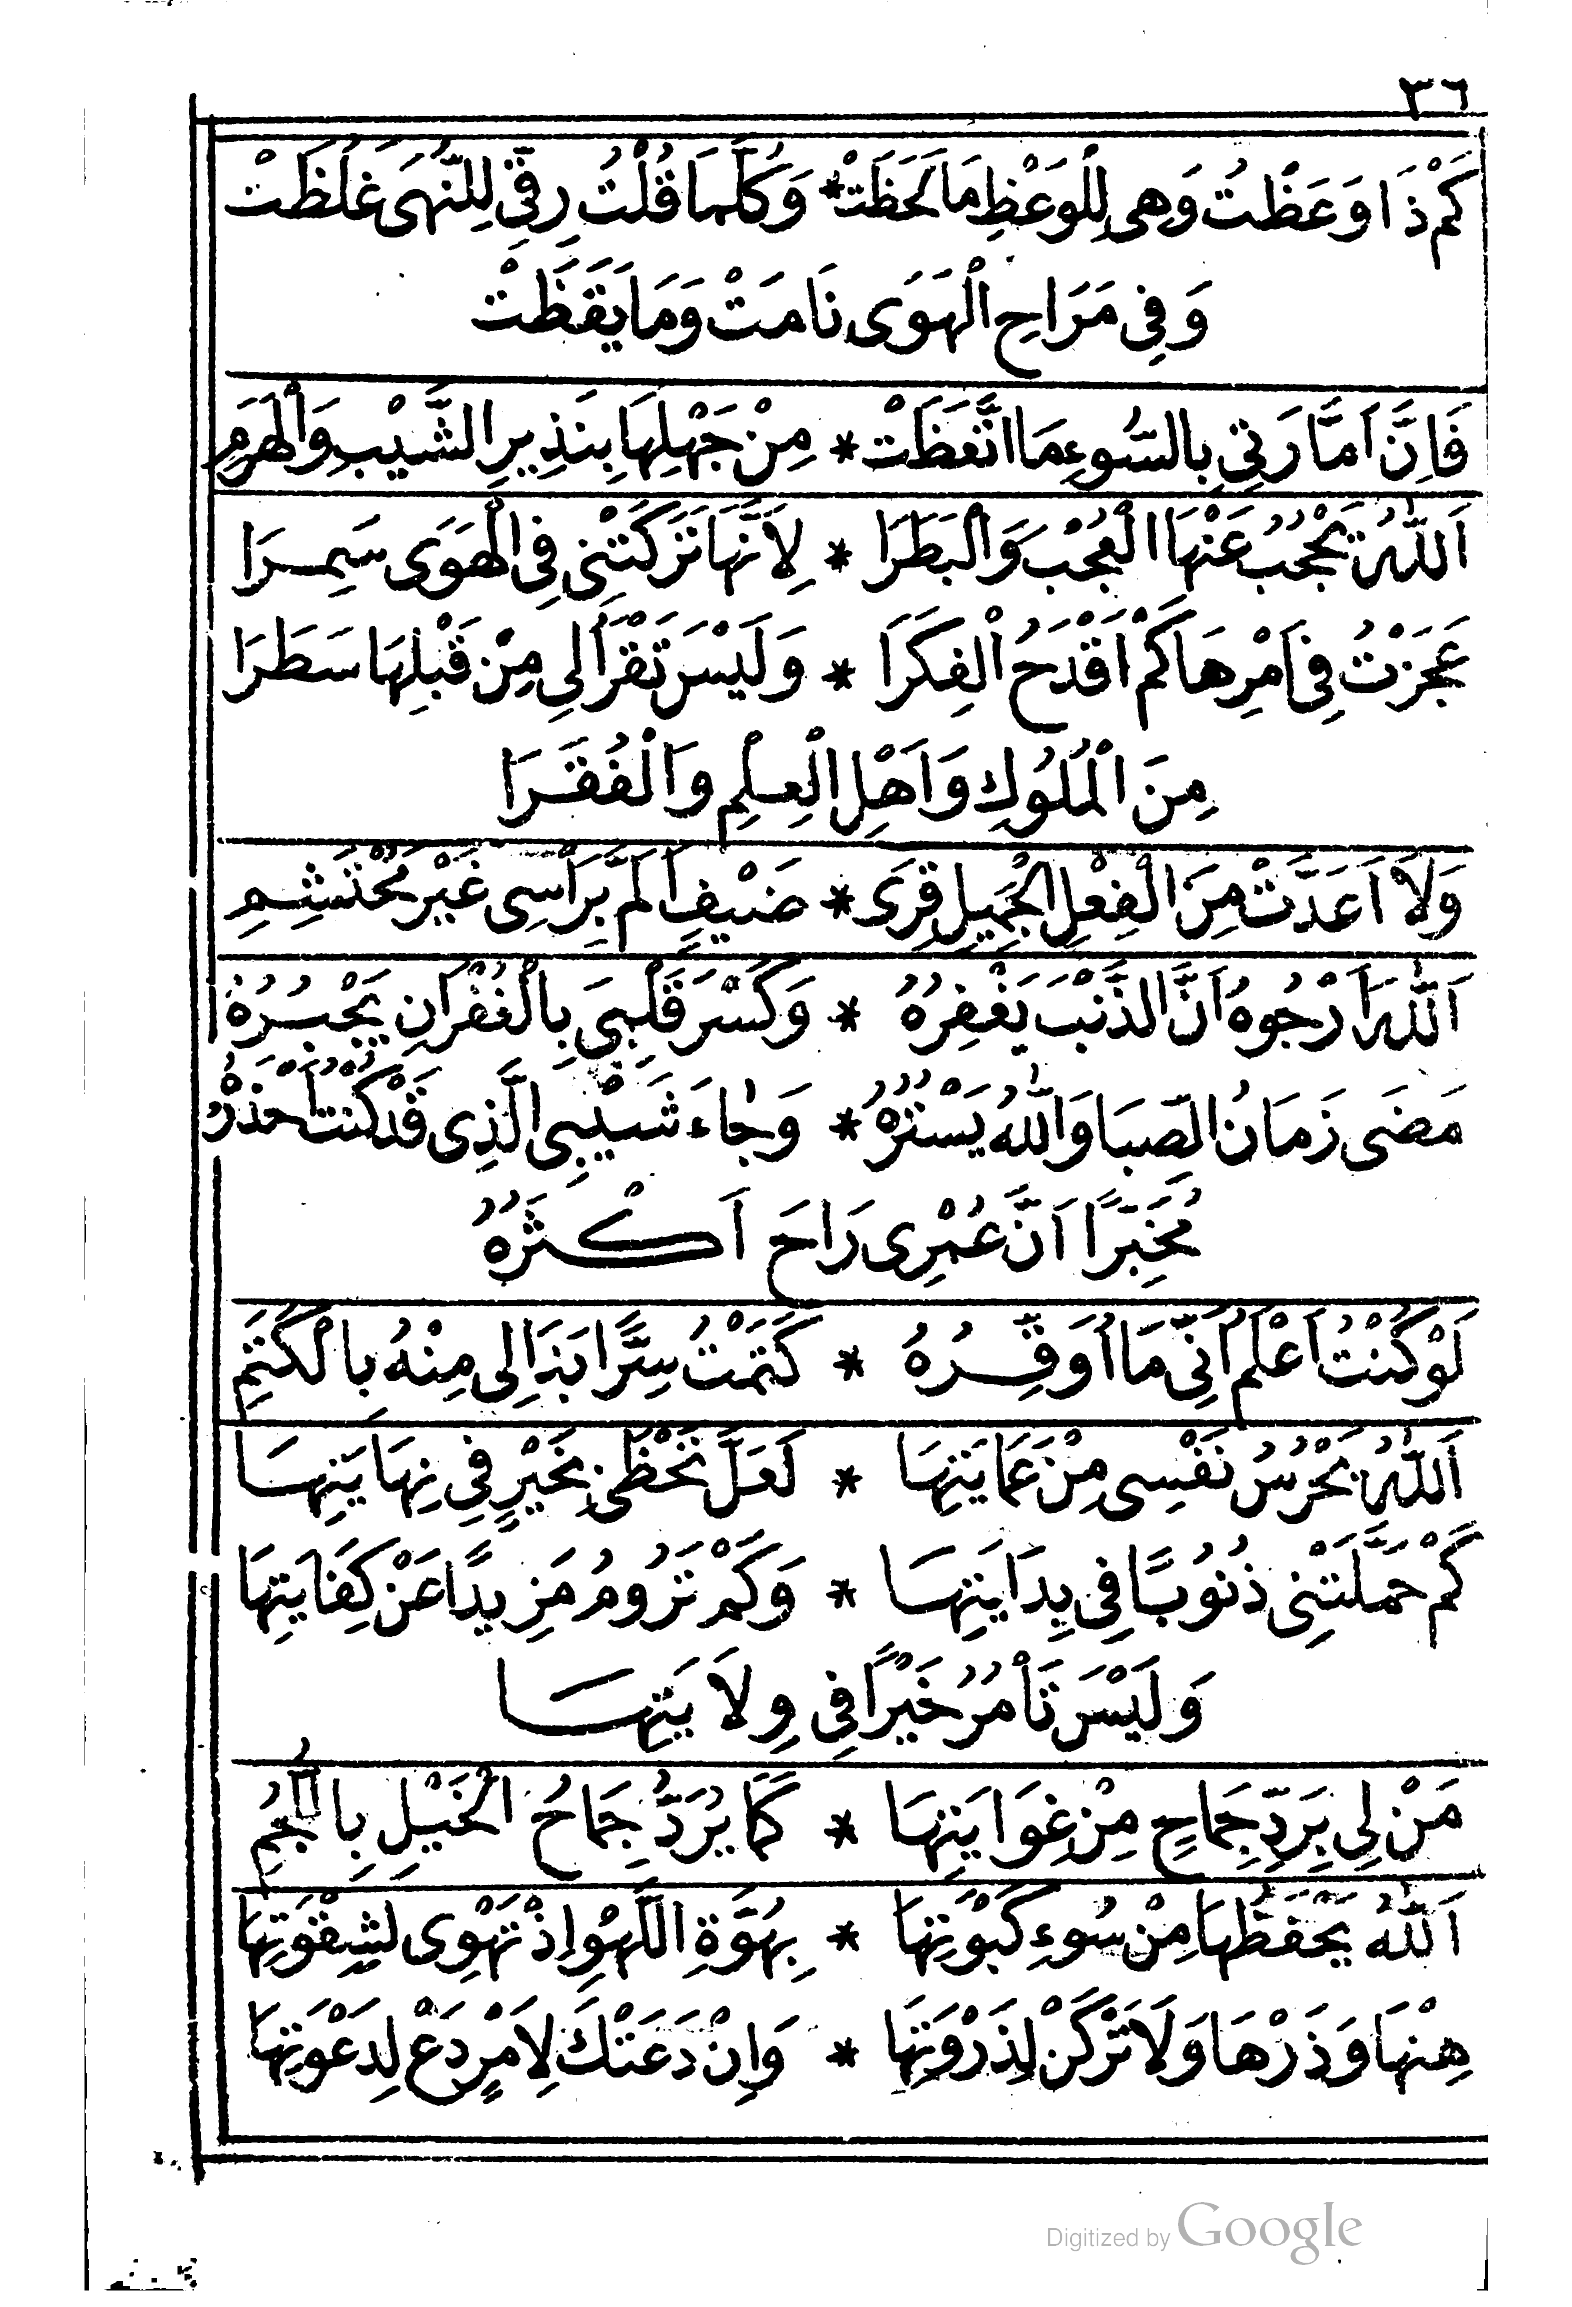 ٣٦
كَمْ ذَا وَعَظْتُ وَهِى لِلْوَعْظِ مَا لَحَظَتْ * وَكُلَّمَا قُلْتُ رِقِّى لِلنُّهَى غَلُظَتْ
وَفِى مَرَاحِ الْهَوَى نَامَتْ وَمَا يَقَظَتْ
فَاِنَّ اَمَّارَتِى بِالسُّوءِ مَا اتَّعَظَتْ * مِنْ جَهْلِهَا بِنَذِيرِ الشَّيْبِ وَالْهَرَمِ
اَللّٰهُ يَحْجُبُ عَنْهَا الْعُجْبَ وَالْبَطَرَا * لِاَنَّهَا تَرَكَتْنِى فِى الْهَوَى سَمِرَا
عَجَزْتُ فِى اَمْرِهَا كَمْ اَقْدَحُ الْفِكَرَا * وَلَيْسَ تَقْرَأُ لِى مِنْ قَبْلِهَا سَطَرَا
مِنَ الْمُلُوكِ وَاَهْلِ الْعِلْمِ وَالْفُقَرَا
وَلَا اَعَدَّتْ مِنَ الْفِعْلِ الْجَمِيلِ قِرَى * ضَيْفٍ اَلَمَّ بِرَأْسِى غَيْرَ مُحْتَشِمِ
اَللّٰهَ اَرْجُوهُ اَنَّ الذَّنْبَ يَغْفِرُهُ * وَكَسْرَ قَلْبِى بِالْغُفْرَانِ يَجْبُرُهُ
مَضَى زَمَانُ الصِّبَا وَاللّٰهُ يَسْتُرُهُ * وَجَاءَ شَيْبِى الَّذِى قَدْ كُنْتُ اَحْذَرُهُ
مُخَبِّرًا اَنَّ عُمْرِى رَاحَ اَكْثَرُهُ
لَوْ كُنْتُ اَعْلَمُ اَنِّى مَا اُوَقِّرُهُ * كَتَمْتُ سِرًّا بَدَا لِى مِنْهُ بِالْكَتَمِ
اَللّٰهُ يَحْرُسُ نَفْسِى مِنْ عَمَايَتِهَا * لَعَلَّ تَحْظَى بِخَيْرٍ فِى نِهَايَتِهَا
كَمْ حَمَّلَتْنِى ذُنُوبًا فِى بِدَايَتِهَا * وَكَمْ تَرُومُ مَزِيدًا عَنْ كِفَايَتِهَا
وَلَيْسَ تَأْمُرُ خَيْرًا فِى وِلَايَتِهَا
مَنْ لِى بِرَدِّ جِمَاحٍ مِنْ غِوَايَتِهَا * كَمَا يُرَدُّ جِمَاحُ الْخَيْلِ بِاللُّجُمِ
اَللّٰهُ يَحْفَظُهَا مِنْ سُوءِ كَبْوَتِهَا * بِهُوَّةِ اللَّهْوِ اِذْ تَهْوِى لِشِقْوَتِهَا
هِنْهَا وَذَرْهَا وَلَا تَرْكَنْ لِذَرْوَتِهَا * وَاِنْ دَعَتْكَ لِاَمْرٍ دَعْ لِدَعْوَتِهَا
Digitized by Google